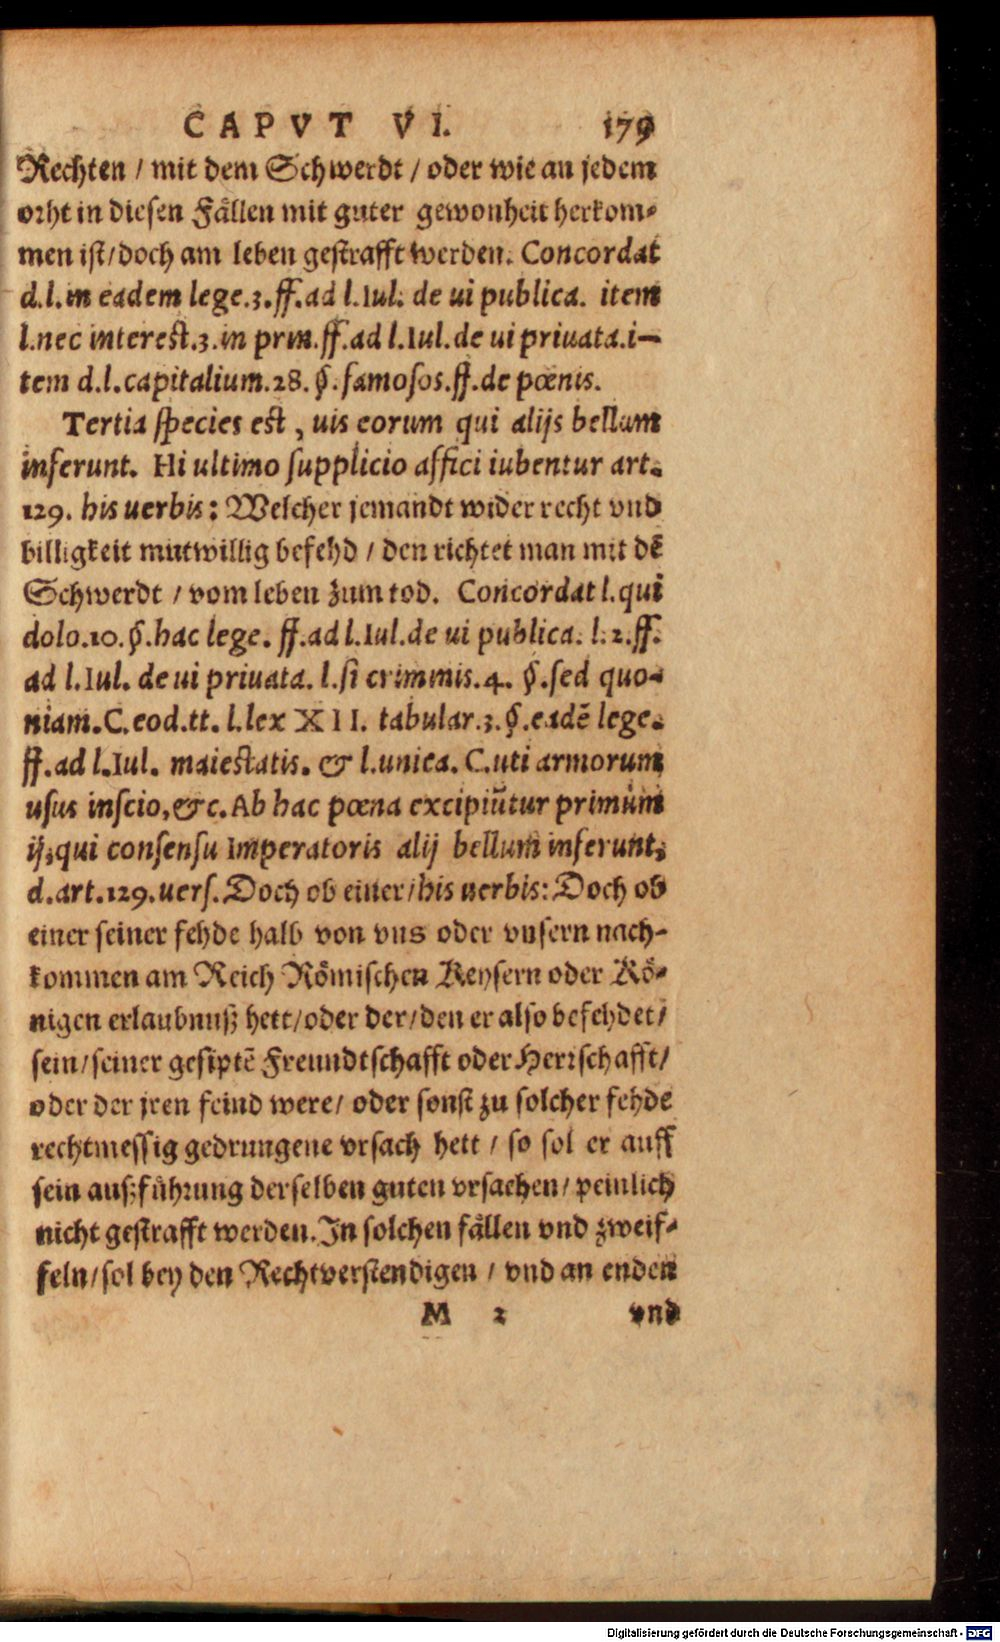 CAPVT VI. 179
Rechten / mit dem Schwerdt / oder wie an jedem
orht in diesen Fällen mit guter gewonheit herkom-
men ist/doch am leben gestrafft werden. Concordat
d.l.in eadem lege.3.ff.ad l.Iul. de ui publica. item
l.nec interest.3.in prin.ff.ad l.Iul.de ui priuata.i-
tem d.l.capitalium.28.§.famosos.ff.de pœnis.
Tertia species est, uis eorum qui alijs bellum
inferunt. Hi ultimo supplicio affici iubentur art.
129. his uerbis: Welcher jemandt wider recht vnd
billigkeit mutwillig befehd / den richtet man mit dē
Schwerdt / vom leben zum tod. Concordat l.qui
dolo.10.§.hac lege. ff.ad l.Iul.de ui publica. l.2.ff.
ad l.Iul. de ui priuata. l.si criminis.4. §.sed quo-
niam.C.eod.tt. l.lex XII. tabular.3.§.eadē lege.
ff.ad l.Iul. maiestatis. & l.unica. C.uti armorum
usus inscio,&c. Ab hac pœna excipiūtur primùm
ij,qui consensu Imperatoris alij bellum inferunt,
d.art.129.uers. Doch ob einer/his uerbis: Doch ob
einer seiner fehde halb von vns oder vnsern nach-
kommen am Reich Römischen Keysern oder Kö-
nigen erlaubnuß hett/oder der/den er also befehdet/
sein/seiner gesiptē Freundtschafft oder Herrschafft/
oder der jren feind were/ oder sonst zu solcher fehde
rechtmessig gedrungene vrsach hett / so sol er auff
sein außführung derselben guten vrsachen/ peinlich
nicht gestrafft werden. In solchen fällen vnd zweif-
feln/sol bey den Rechtverstendigen / vnd an enden
M 2 vnd
Digitalisierung gefördert durch die Deutsche Forschungsgemeinschaft - DFG